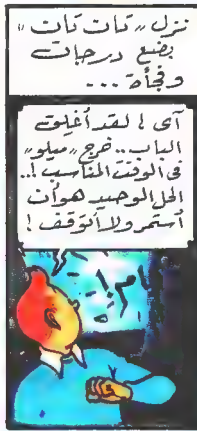 نزل „تان تان"
بضع درجات
وفجأة ...
آى ! لقد أغلق
الباب .. خرج „ميلو"
فى الوقت المناسب !..
الحل الوحيد هو أن
أستمر ولا أتوقف !